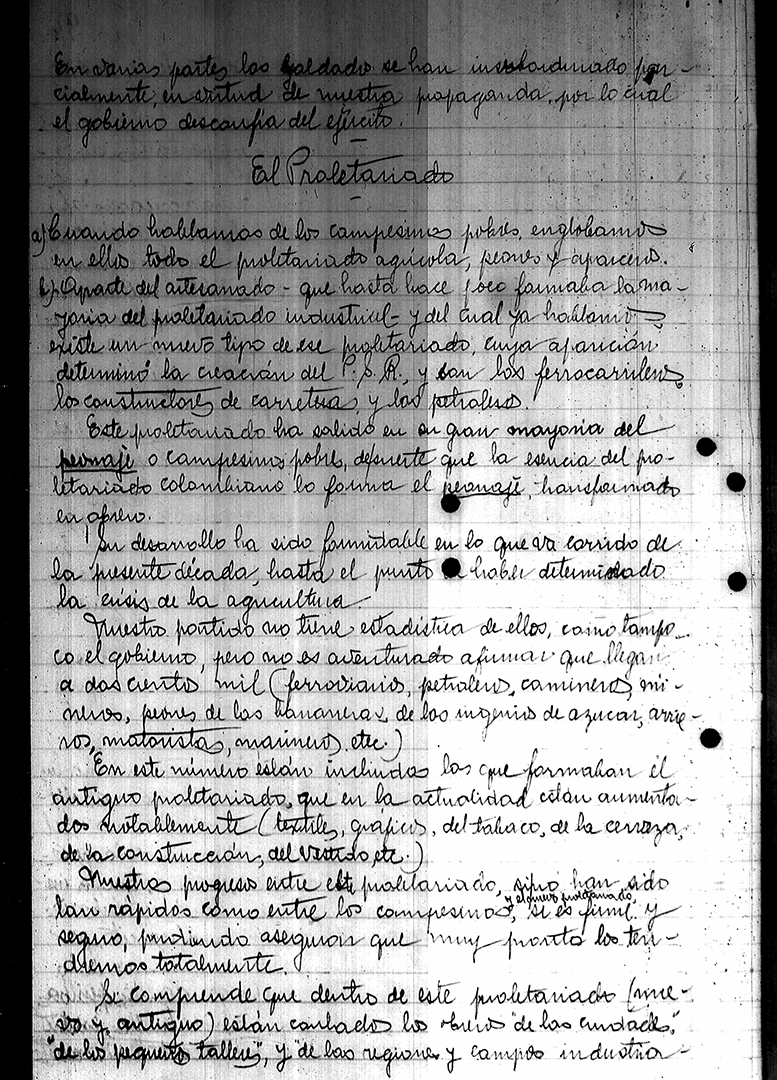 En varias partes los soldados se han insubordinado par-
cialmente, en virtud de nuestra propaganda, por lo cual
el gobierno desconfia del ejército.
El Proletariado
a) Cuando hablamos de los campesinos pobres, englobamos
en ellos todo el proletariado agrícola, peones y aparceros.
b) Aparte del artesanado - que hasta hace poco formaba la ma-
yoria del proletariado industrial - y del cual ya hablamos
existe un nuevo tipo de ese proletariado, cuya aparición
determinó la creación del P.S.R., y son los ferrocarrileros,
los constructores de carreteras, y los petroleros.
Este proletariado ha salido en su gran mayoria del
peonaje o campesinos pobres, de suerte que la esencia del pro-
letariado colombiano lo forma el peonaje, transformado
en obrero.
Su desarrollo ha sido formidable en lo que va corrido de
la presente década, hasta el punto haber determinado
la crisis de la agricultura.
Nuestro partido no tiene estadistica de ellos, como tampo-
co el gobierno, pero no es aventurado afirmar que llegan
a doscientos mil (ferroviarios, petroleros, camineros, mi-
neros, peones de las bananeras, de los ingenios de azucar, arrie-
ros, motoristas, marineros, etc.)
En este número están incluidos los que formaban el
antiguo proletariado, que en la actualidad están aumenta-
dos notablemente (textiles, gráficos, del tabaco, de la cerveza,
de la construcción, del vestido etc.)
Nuestros progresos entre este proletariado, sino han sido
y el nuevo
tan rápidos como entre los campesinos, si es firme y
seguro, pudiendo asegurar que muy pronto los ten-
dremos totalmente.
Se comprende que dentro de este proletariado (nue-
vo y antiguo) están contados los obreros "de las ciudades,"
"de los pequeños talleres", y "de las regiones y campos industria-